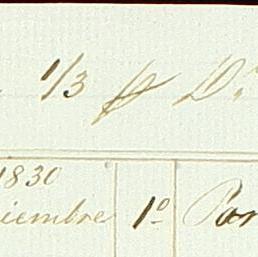 1/3
1830
iembre 1º Par